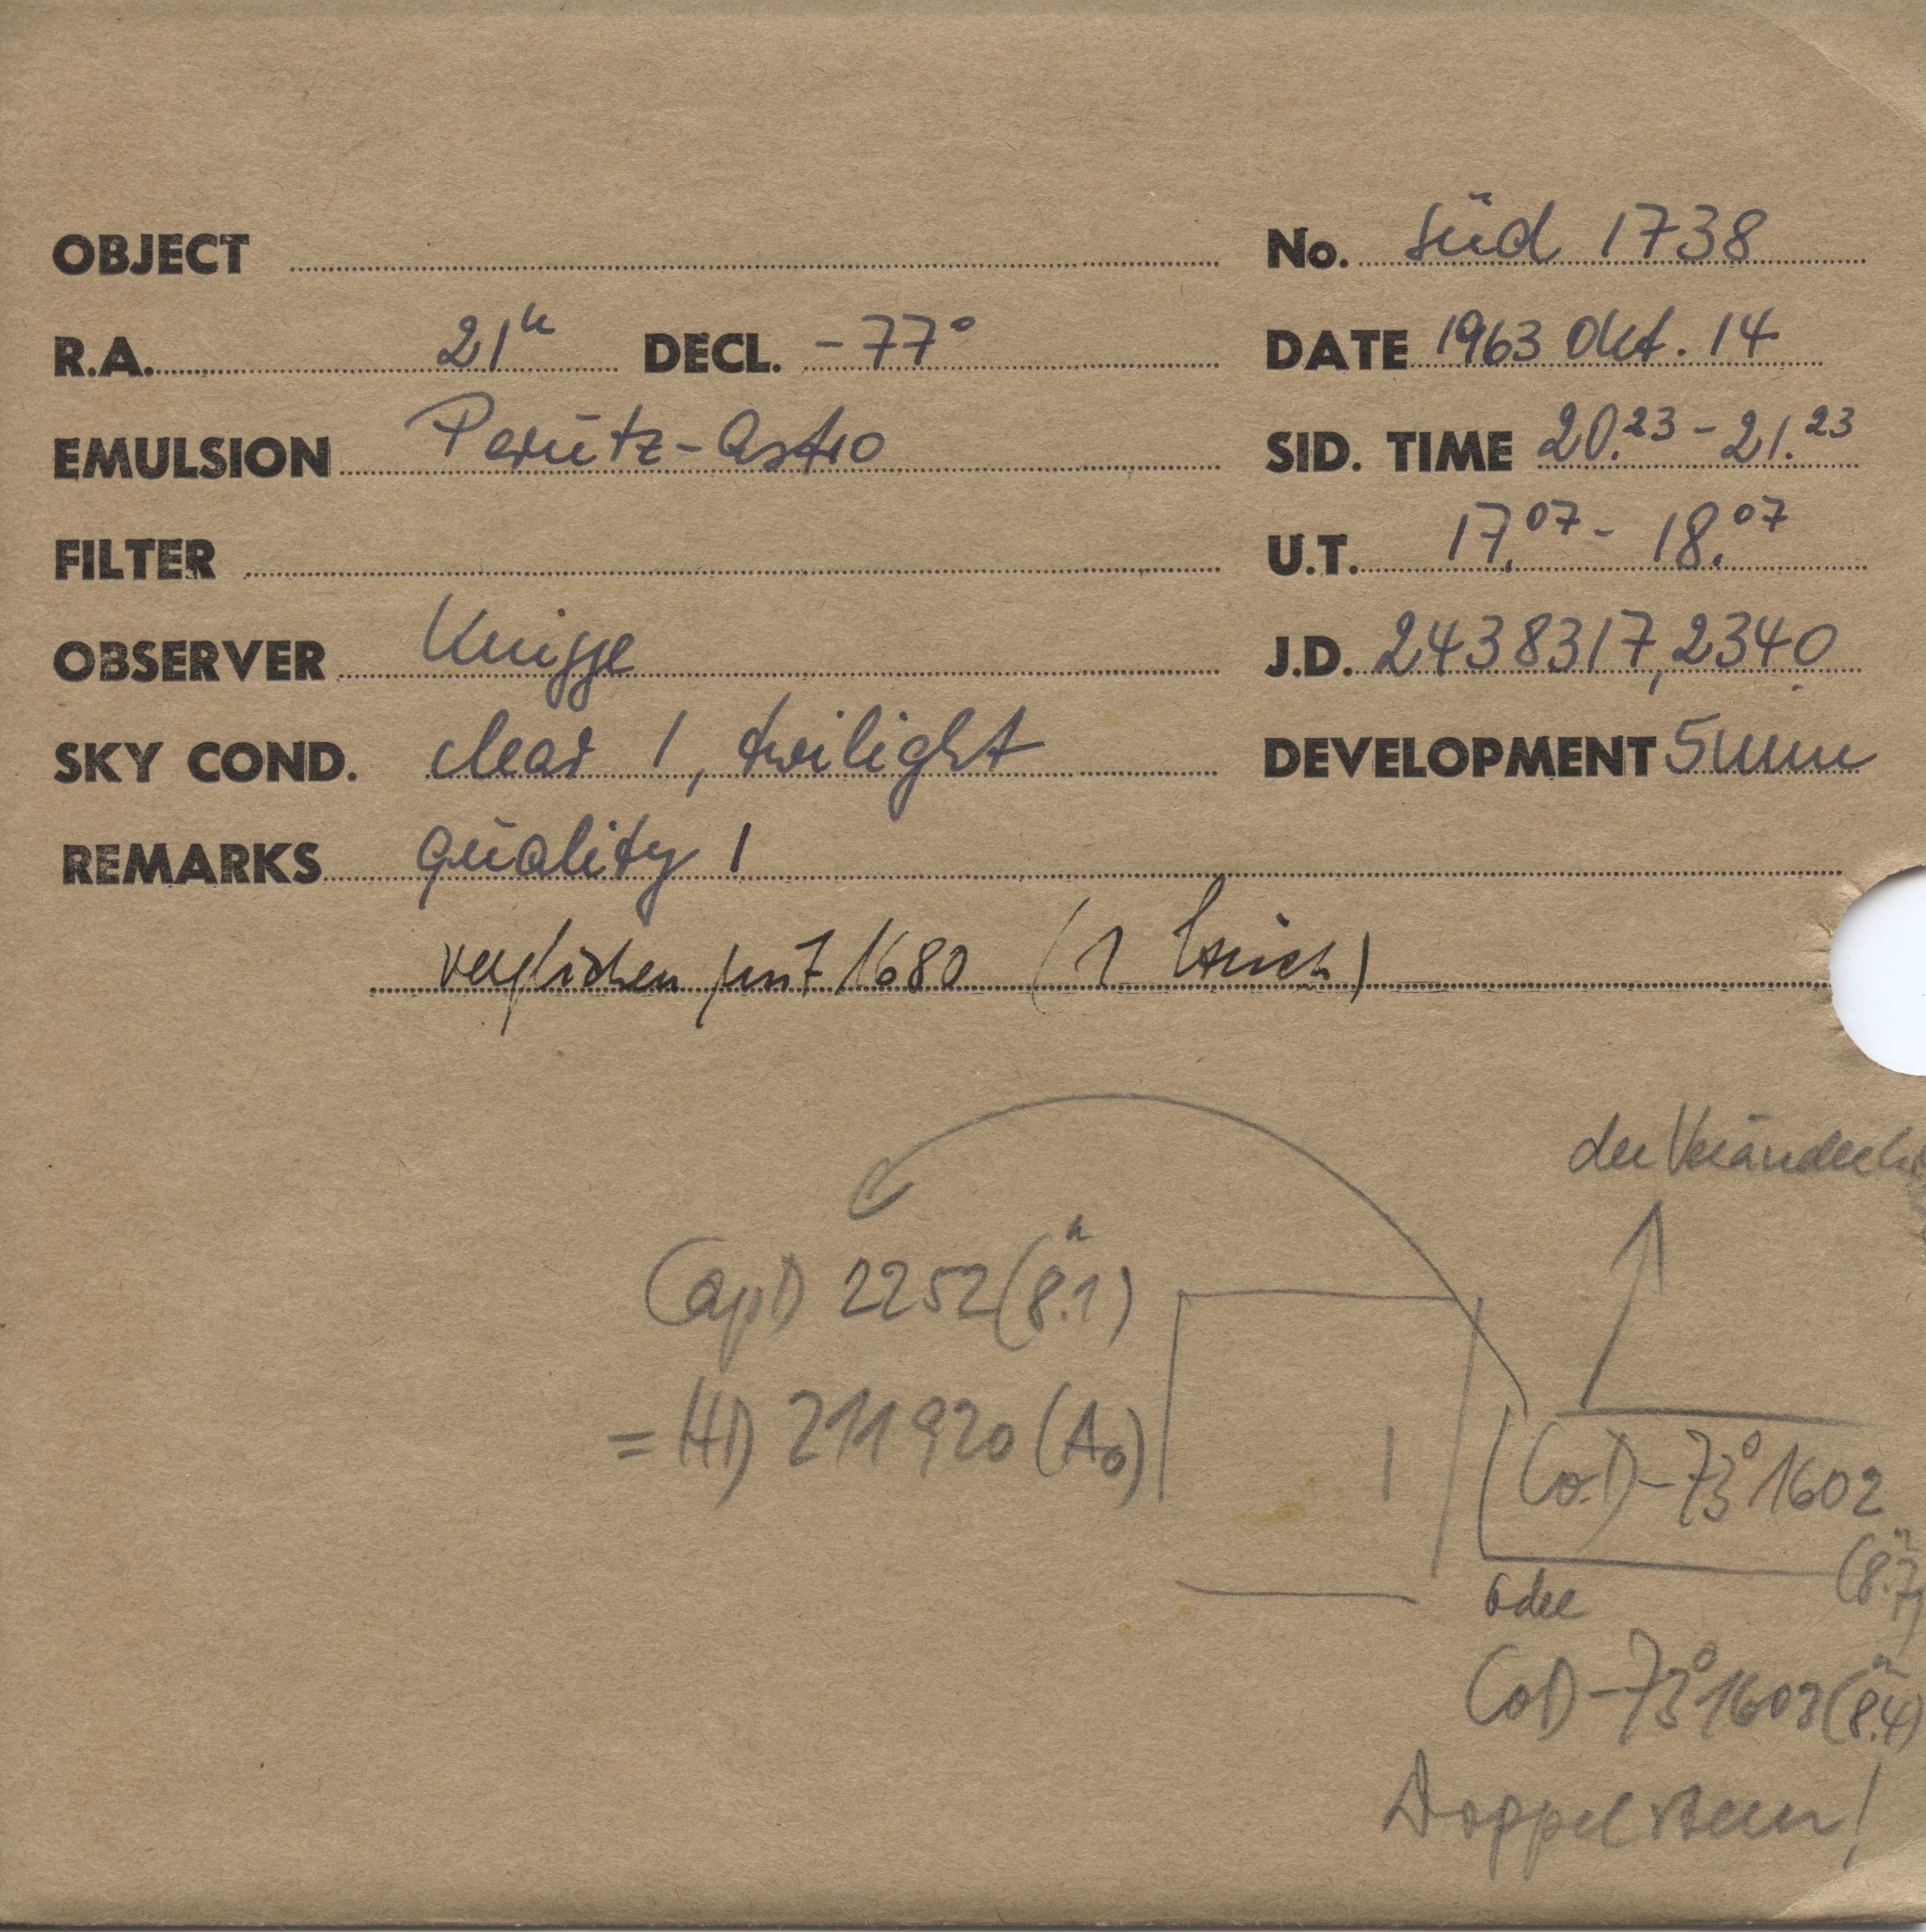 OBJECT No. Süd 1738
R.A. 21h DECL. -77° DATE 1963 Okt. 14
EMULSION Perutz-Astro SID. TIME 20.23 - 21.23
FILTER U.T. 17.07 - 18.07
OBSERVER Knigge J.D. 2438317,2340
SKY COND. clear 1, twilight DEVELOPMENT 5min
REMARKS quality 1
verglichen mit 1680 (1
der Veränderl
CapD 2252 (8.1)
= HD 211920 (A0)
CoD-73°1602
(8.7)
oder
CoD-73°1603 (8.4)
Doppelstern!